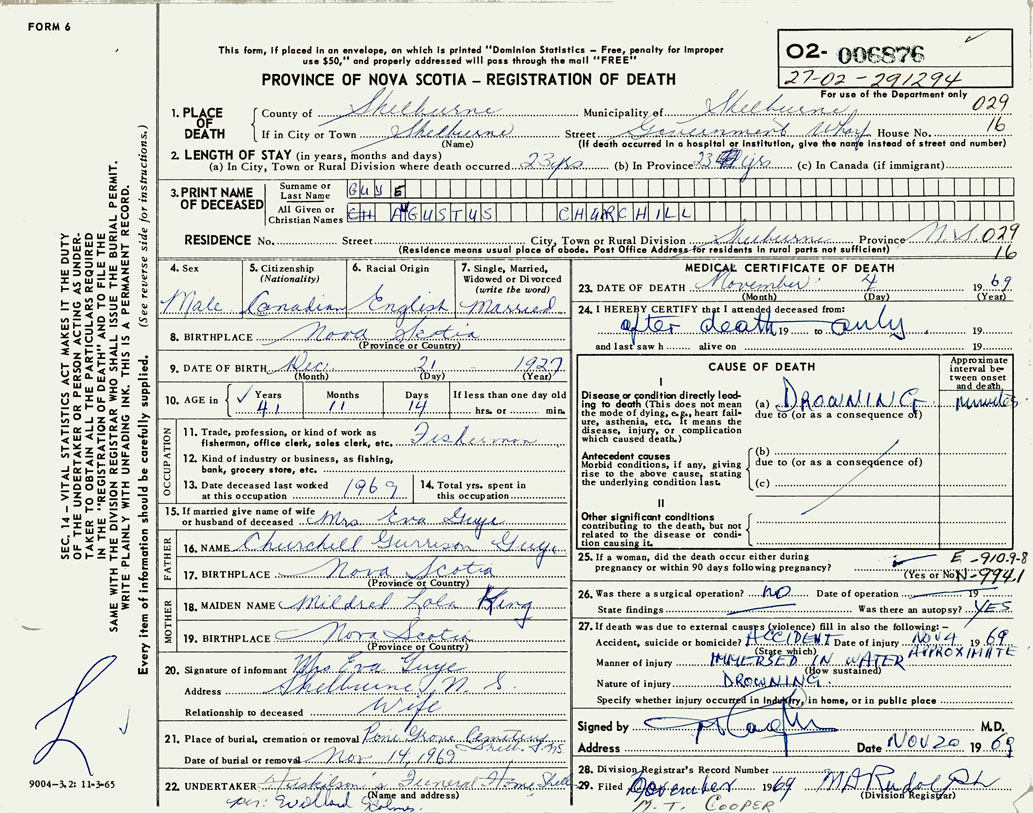 FORM 6
This form, if placed in an envelope, on which is printed "Dominion Statistics – Free, penalty for improper
use $50," and properly addressed will pass through the mail "FREE"
PROVINCE OF NOVA SCOTIA – REGISTRATION OF DEATH
02- 006876
27-02-291294
For use of the Department only
029
16
1. PLACE OF DEATH
County of Shelburne Municipality of Shelburne
If in City or Town Shelburne Street Government Wharf House No.
(Name) (If death occurred in a hospital or institution, give the name instead of street and number)
2. LENGTH OF STAY (in years, months and days)
(a) In City, Town or Rural Division where death occurred 23 yrs (b) In Province 23 yrs (c) In Canada (if immigrant)
3. PRINT NAME OF DECEASED
Surname or Last Name GUYE
All Given or Christian Names AUGUSTUS CHURCHILL
RESIDENCE No. Street City, Town or Rural Division Shelburne Province N.S. 029
(Residence means usual place of abode. Post Office Address for residents in rural parts not sufficient) 16
4. Sex
Male
5. Citizenship (Nationality)
Canadian
6. Racial Origin
English
7. Single, Married, Widowed or Divorced (write the word)
Married
8. BIRTHPLACE Nova Scotia
(Province or Country)
9. DATE OF BIRTH Dec. 21 1927
(Month) (Day) (Year)
10. AGE in Years Months Days If less than one day old
41 11 14 hrs. or min.
OCCUPATION
11. Trade, profession, or kind of work as
fisherman, office clerk, sales clerk, etc. Fisherman
12. Kind of industry or business, as fishing,
bank, grocery store, etc.
13. Date deceased last worked at this occupation 1969
14. Total yrs. spent in this occupation
15. If married give name of wife
or husband of deceased Mrs Eva Guye
FATHER
16. NAME Churchill Gurrison Guye
17. BIRTHPLACE Nova Scotia
(Province or Country)
MOTHER
18. MAIDEN NAME Mildred Lola King
19. BIRTHPLACE Nova Scotia
(Province or Country)
20. Signature of informant Mrs Eva Guye
Address Shelburne, N.S.
Relationship to deceased Wife
21. Place of burial, cremation or removal Pine Grove Cemetery
Shel. N.S.
Date of burial or removal Nov 14, 1969
22. UNDERTAKER Huskilson's Funeral Home, Shelb
(Name and address)
per: Willard Holmes
MEDICAL CERTIFICATE OF DEATH
23. DATE OF DEATH November 4 1969
(Month) (Day) (Year)
24. I HEREBY CERTIFY that I attended deceased from:
after death 19 to only. 19
and last saw h alive on 19
CAUSE OF DEATH
Approximate interval between onset and death
I
Disease or condition directly leading to death (This does not mean
the mode of dying, e.g., heart failure, asthenia, etc. It means the
disease, injury, or complication which caused death.)
(a) DROWNING minutes
due to (or as a consequence of)
Antecedent causes
Morbid conditions, if any, giving rise to the above cause, stating
the underlying condition last.
(b)
due to (or as a consequence of)
(c)
II
Other significant conditions
contributing to the death, but not related to the disease or condition causing it.
25. If a woman, did the death occur either during
pregnancy or within 90 days following pregnancy?
(Yes or No)
E-910.9-8
N-9941
26. Was there a surgical operation? NO Date of operation 19
State findings Was there an autopsy? YES
27. If death was due to external causes (violence) fill in also the following:–
Accident, suicide or homicide? ACCIDENT Date of injury NOV 4 1969
(State which) APPROXIMATE
Manner of injury IMMERSED IN WATER
(How sustained)
Nature of injury DROWNING.
Specify whether injury occurred in Industry, in home, or in public place
Signed by M.D.
Address Date NOV 20 1969
28. Division Registrar's Record Number
29. Filed November 1969 M A Rudolph
(Division Registrar)
M. T. COOPER
SEC. 14 – VITAL STATISTICS ACT MAKES IT THE DUTY
OF THE UNDERTAKER OR PERSON ACTING AS UNDER-
TAKER TO OBTAIN ALL THE PARTICULARS REQUIRED
IN THE "REGISTRATION OF DEATH" AND TO FILE THE
SAME WITH THE DIVISION REGISTRAR WHO SHALL ISSUE THE BURIAL PERMIT.
WRITE PLAINLY WITH UNFADING INK. THIS IS A PERMANENT RECORD.
Every item of information should be carefully supplied. (See reverse side for instructions.)
9004–3.2: 11-3-65